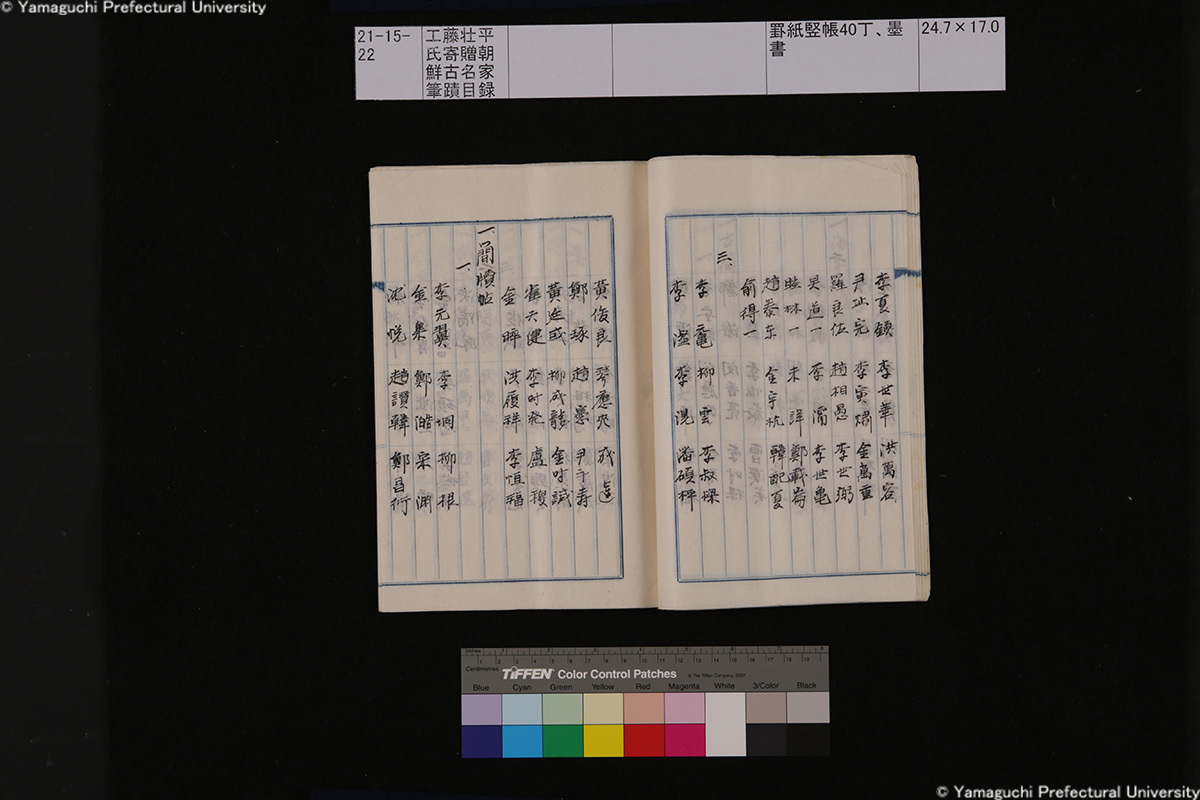 © Yamaguchi Prefectural University
21-15-22
工藤壮平
氏寄贈朝
鮮古名家
筆蹟目録
罫紙竪帳40丁、墨書
24.7×17.0
李世華 洪萬容
尹址完 李寅燁 金萬重
羅良佐 趙相愚 李世弼
吴道一 李濡 李世亀
睦林一 未詳 鄭載崙
趙泰东 金宇杭 韓配夏
俞得一
三、
李 柳雲 李叔樑
李 李滉 潘碩枰
黄俊良 成遠
鄭琢 趙憲 尹千壽
黄廷彧 柳成龍 金
崔天健 李时發 盧稷
金晬 洪履祥 李恒福
一、簡牘帖
一、
李元翼 李垌 柳根
金 鄭 宋
沈悦 趙讃韓 鄭昌衍
inches
Centimetres
TIFFEN Color Control Patches
© The Tiffen Company, 2007
Blue Cyan Green Yellow Red Magenta White 3/Color Black
© Yamaguchi Prefectural University